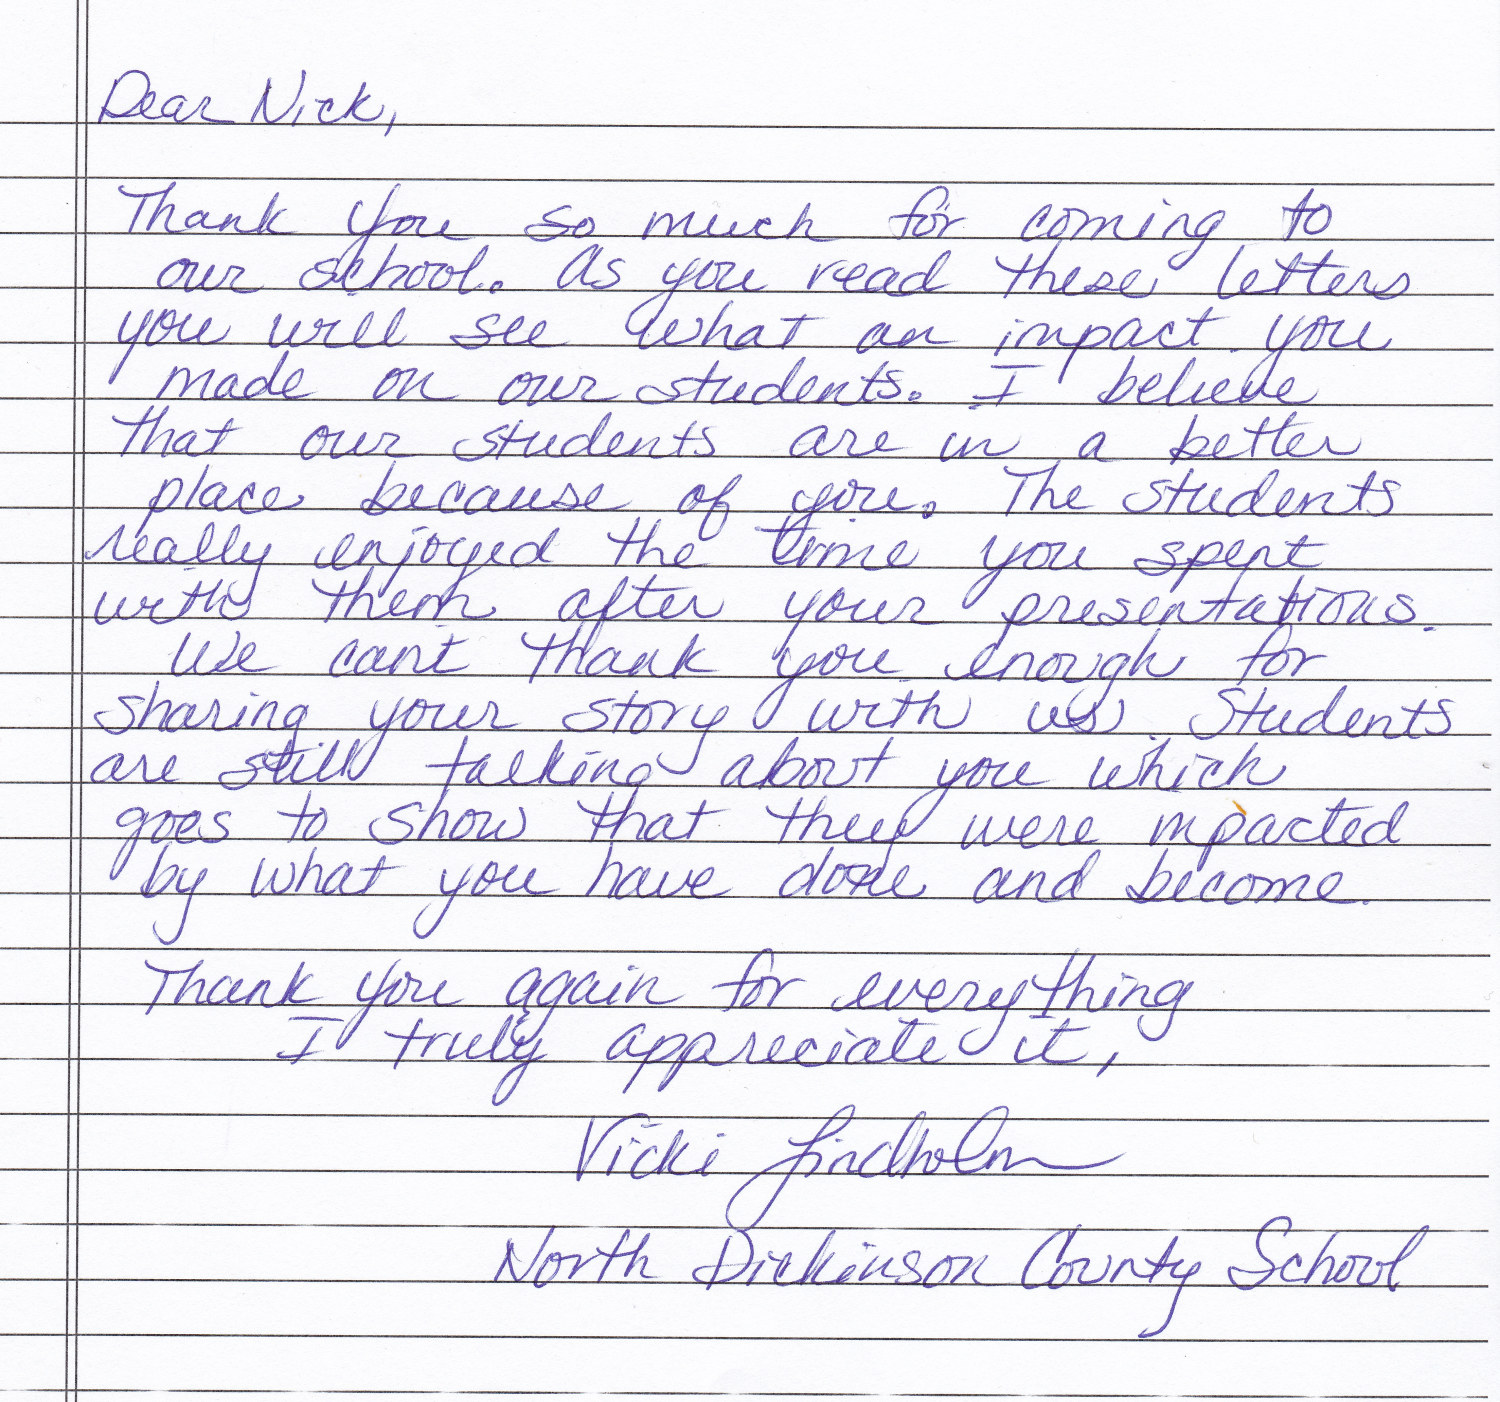 Dear Nick,
Thank you so much for coming to
our school. As you read these letters
you will see what an impact you
made on our students. I believe
that our students are in a better
place because of you. The students
really enjoyed the time you spent
with them after your presentations.
We cant thank you enough for
sharing your story with us. Students
are still talking about you which
goes to show that they were mpacted
by what you have done and become.
Thank you again for everything
I truly appreciate it,
Vicki Lindholm
North Dickinson County School